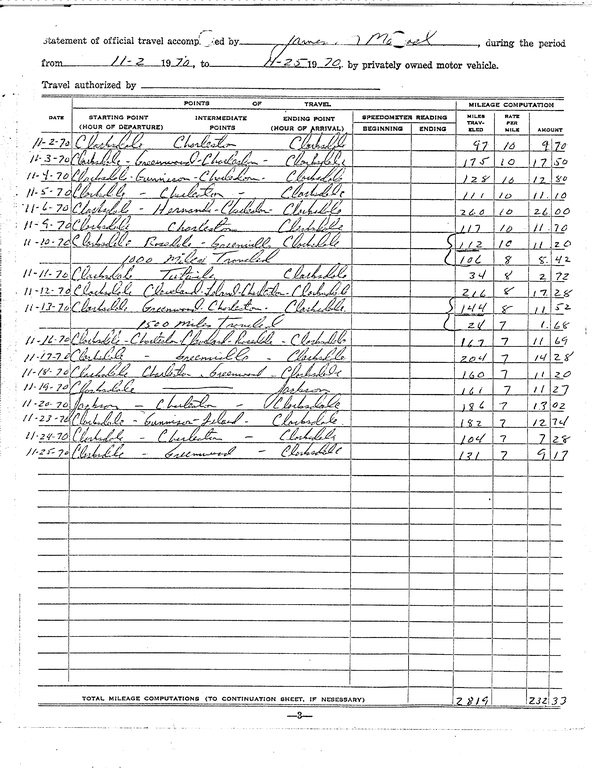 Statement of official travel accomp ed by James Mc , during the period
from 11-2 1970, to 11-25 1970, by privately owned motor vehicle.
Travel authorized by
POINTS OF TRAVEL MILEAGE COMPUTATION
DATE STARTING POINT (HOUR OF DEPARTURE) INTERMEDIATE POINTS ENDING POINT (HOUR OF ARRIVAL) SPEEDOMETER READING BEGINNING ENDING MILES TRAV- ELED RATE PER MILE AMOUNT
11-2-70 Clarksdale Charleston Clarksdale 97 10 9 70
11-3-70 Clarksdale - Greenwood - Charleston - Clarksdale 175 10 17 50
11-4-70 Clarksdale - Gunnison - Charleston - Clarksdale 128 10 12 80
11-5-70 Clarksdale - Charleston - Clarksdale 111 10 11.10
11-6-70 Clarksdale - Hernando - Charleston - Clarksdale 260 10 26 00
11-9-70 Clarksdale Charleston Clarksdale 117 10 11.70
11-10-70 Clarksdale Rosedale - Greenville Clarksdale 112 10 11 20
1000 Miles Traveled 106 8 8.42
11-11-70 Clarksdale Tutwiler Clarksdale 34 8 2 72
11-12-70 Clarksdale Cleveland - Island - Charleston - Clarksdale 216 8 17 28
11-13-70 Clarksdale Greenwood - Charleston - Clarksdale 144 8 11 52
1500 Miles Traveled 24 7 1.68
11-16-70 Clarksdale - Charleston - Cleveland - Rosedale - Clarksdale 167 7 11 69
11-17-70 Clarksdale - Greenville - Clarksdale 204 7 14 28
11-18-70 Clarksdale Charleston - Greenwood - Clarksdale 160 7 11 20
11-19-70 Clarksdale Jackson 161 7 11 27
11-20-70 Jackson - Charleston - Clarksdale 186 7 13 02
11-23-70 Clarksdale - Gunnison - Island - Clarksdale 182 7 12 74
11-24-70 Clarksdale - Charleston - Clarksdale 104 7 7 28
11-25-70 Clarksdale - Greenwood - Clarksdale 131 7 9 17
TOTAL MILEAGE COMPUTATIONS (TO CONTINUATION SHEET, IF NESESSARY) 2819 232 33
—3—